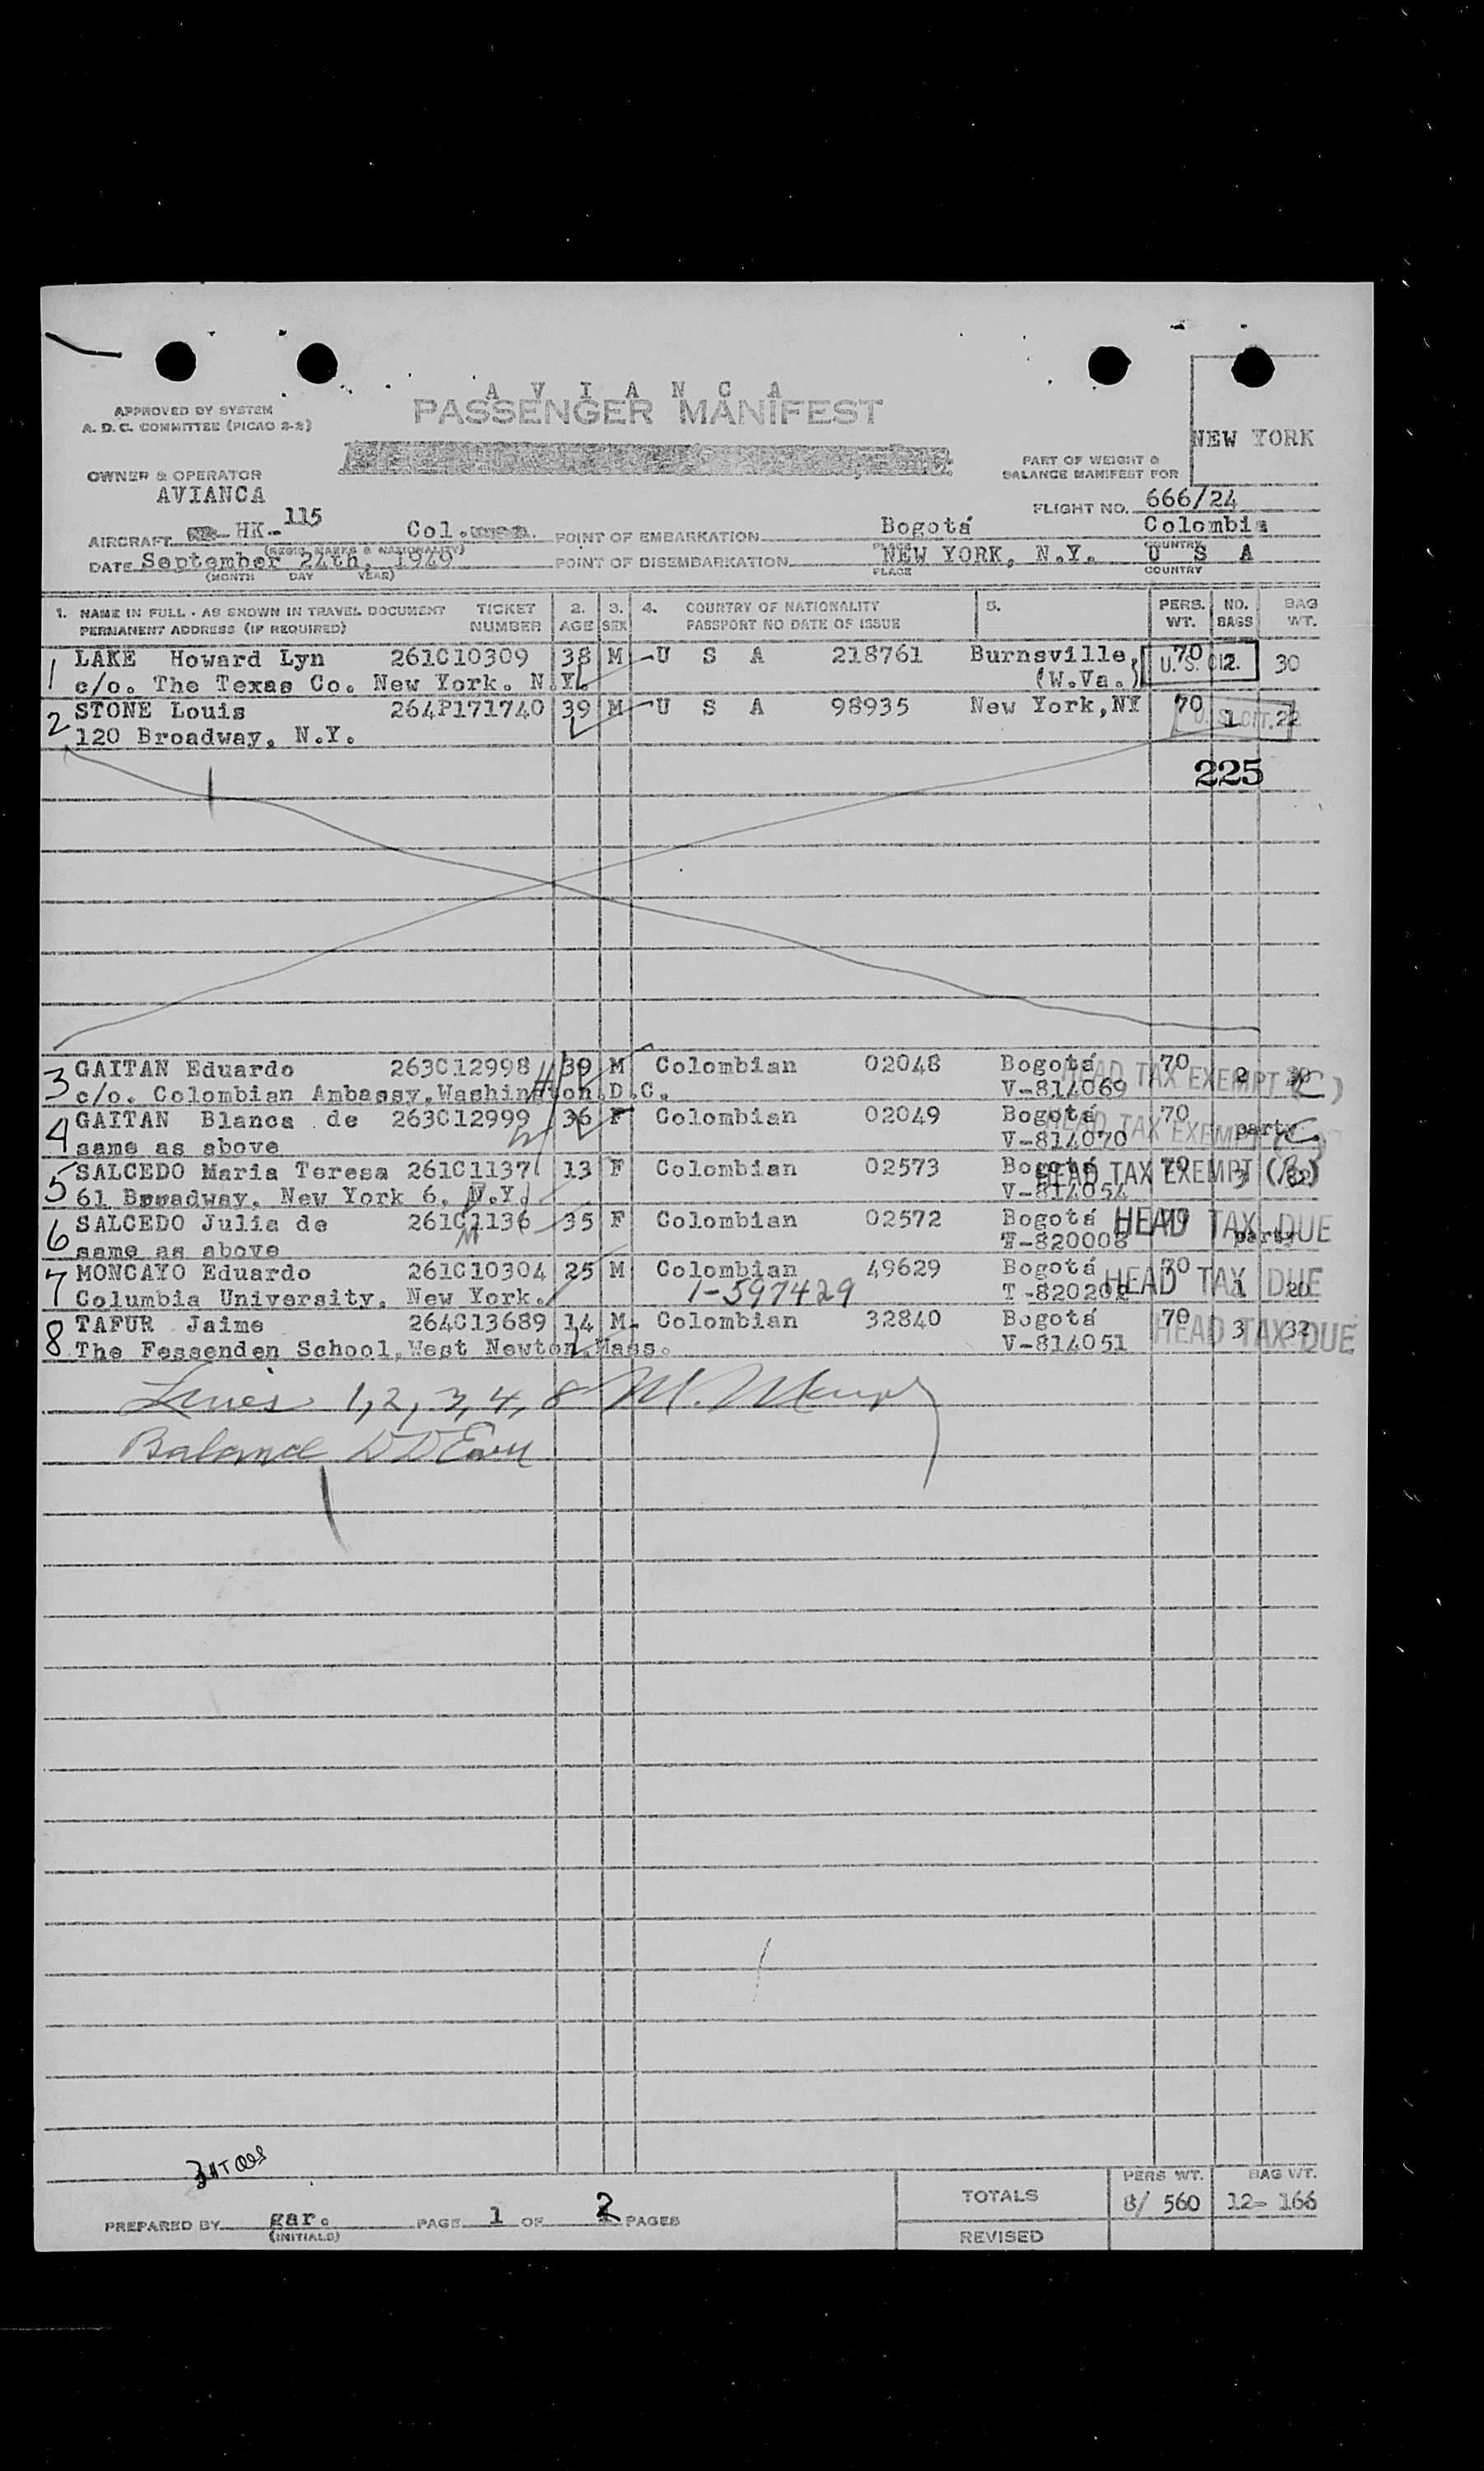 A V I A N C A
PASSENGER MANIFEST
APPROVED BY SYSTEM
A. D. C. COMMITTEE (PICAO 2-2)
NEW YORK
PART OF WEIGHT &
BALANCE MANIFEST FOR
OWNER & OPERATOR
AVIANCA
FLIGHT NO. 666/24
AIRCRAFT HK-115 Col. POINT OF EMBARKATION Bogotá Colombia
(REGIS. MARKS & NATIONALITY) PLACE COUNTRY
DATE September 24th, 1949 POINT OF DISEMBARKATION NEW YORK, N.Y. U S A
(MONTH DAY YEAR) PLACE COUNTRY
1. NAME IN FULL - AS SHOWN IN TRAVEL DOCUMENT TICKET 2. 3. 4. COUNTRY OF NATIONALITY 5. PERS. NO. BAG
PERMANENT ADDRESS (IF REQUIRED) NUMBER AGE SEX PASSPORT NO DATE OF ISSUE WT. BAGS WT.
1 LAKE Howard Lyn 261C10309 38 M U S A 218761 Burnsville, 70 U. S. CIT. 2 30
c/o. The Texas Co. New York. N.Y. (W.Va.)
2 STONE Louis 264P171740 39 M U S A 98935 New York,NY 70 1 22
120 Broadway, N.Y. U. S. CIT.
225
3 GAITAN Eduardo 263C12998 39 M Colombian 02048 Bogotá 70 2
c/o. Colombian Ambassy,Washington,D.C. V-814069 HEAD TAX EXEMPT (C)
4 GAITAN Blanca de 263C12999 36 F Colombian 02049 Bogotá 70 party
same as above V-814070 HEAD TAX EXEMPT (C)
5 SALCEDO Maria Teresa 261C1137 13 F Colombian 02573 Bogotá 70 3
61 Broadway, New York 6, N.Y. V-814054 HEAD TAX EXEMPT
6 SALCEDO Julia de 261C1136 35 F Colombian 02572 Bogotá 70 party
same as above T-820008 HEAD TAX DUE
7 MONCAYO Eduardo 261C10304 25 M Colombian 49629 Bogotá 70 1 20
Columbia University, New York. 1-597429 T-820202 HEAD TAX DUE
8 TAFUR Jaime 264C13689 14 M Colombian 32840 Bogotá 70 3 32
The Fessenden School,West Newton,Mass. V-814051 HEAD TAX DUE
Lines 1, 2, 3, 4, 8 M.
Balance
TOTALS PERS WT. 8/ 560 BAG WT. 12- 166
PREPARED BY gar. PAGE 1 OF 2 PAGES
(INITIALS)
REVISED